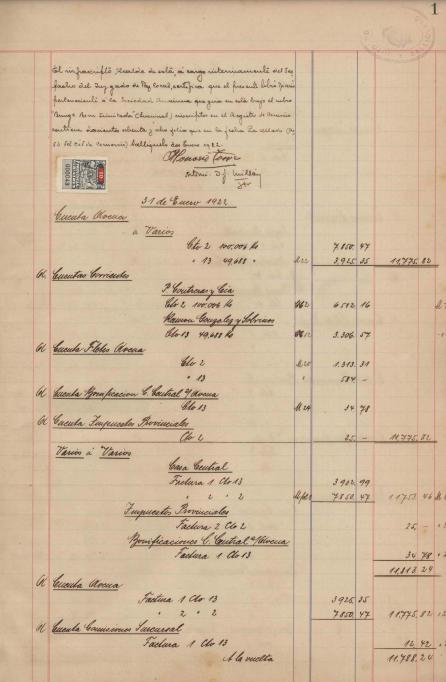 1
El infrascripto Alcalde de esta, a cargo interinamente del Juz
gado de Paz Local, certifica que el presente libro Diario
perteneciente a la Sociedad Anonima que gira en esta bajo el rubro
Bunge Born Limitada (Chacras), inscriptos en el Registro de Comercio
contiene doscientos ochenta y ocho folios que en la fecha
53 del Cód de Comercio)
Enero 1922
31 de Enero 1922
Cuenta Avena
a Varios
Cto 2 100.006 Ks 7.850.47
" 13 49,688 " M 22 3.925.35 11,775.82
a Cuentas Corrientes
P. Contreras y Cia
Cto 2 100.006 Ks 6512 16
Ramon Gonzalez y Sobrinos
Cto 13 49,688 Ks 3.306.57
a Cuenta Fletes Avena
Cto 2 M 20 1.313.31
" 13 " 584 -
a Cuenta Bonificacion C. Central s/ Avena
Cto 13 M 24 34 78
a Cuenta Impuestos Provinciales
Cto 2 25 - 11,775.82
Varios a Varios
Casa Central
Factura 1 Cto 13 3902.99
" 2 " 2 7850.47 11,753.46
Impuestos Provinciales
Factura 2 Cto 2 25 -
Bonificaciones C. Central s/ Avena
Factura 1 Cto 13 34 78
11,813.24
a Cuenta Avena
Factura 1 Cto 13 3925.35
" 2 " 2 7850.47 11,775.82
a Cuenta Comisiones Sucursal
Factura 1 Cto 13 12.42
A la vuelta 11,788.24